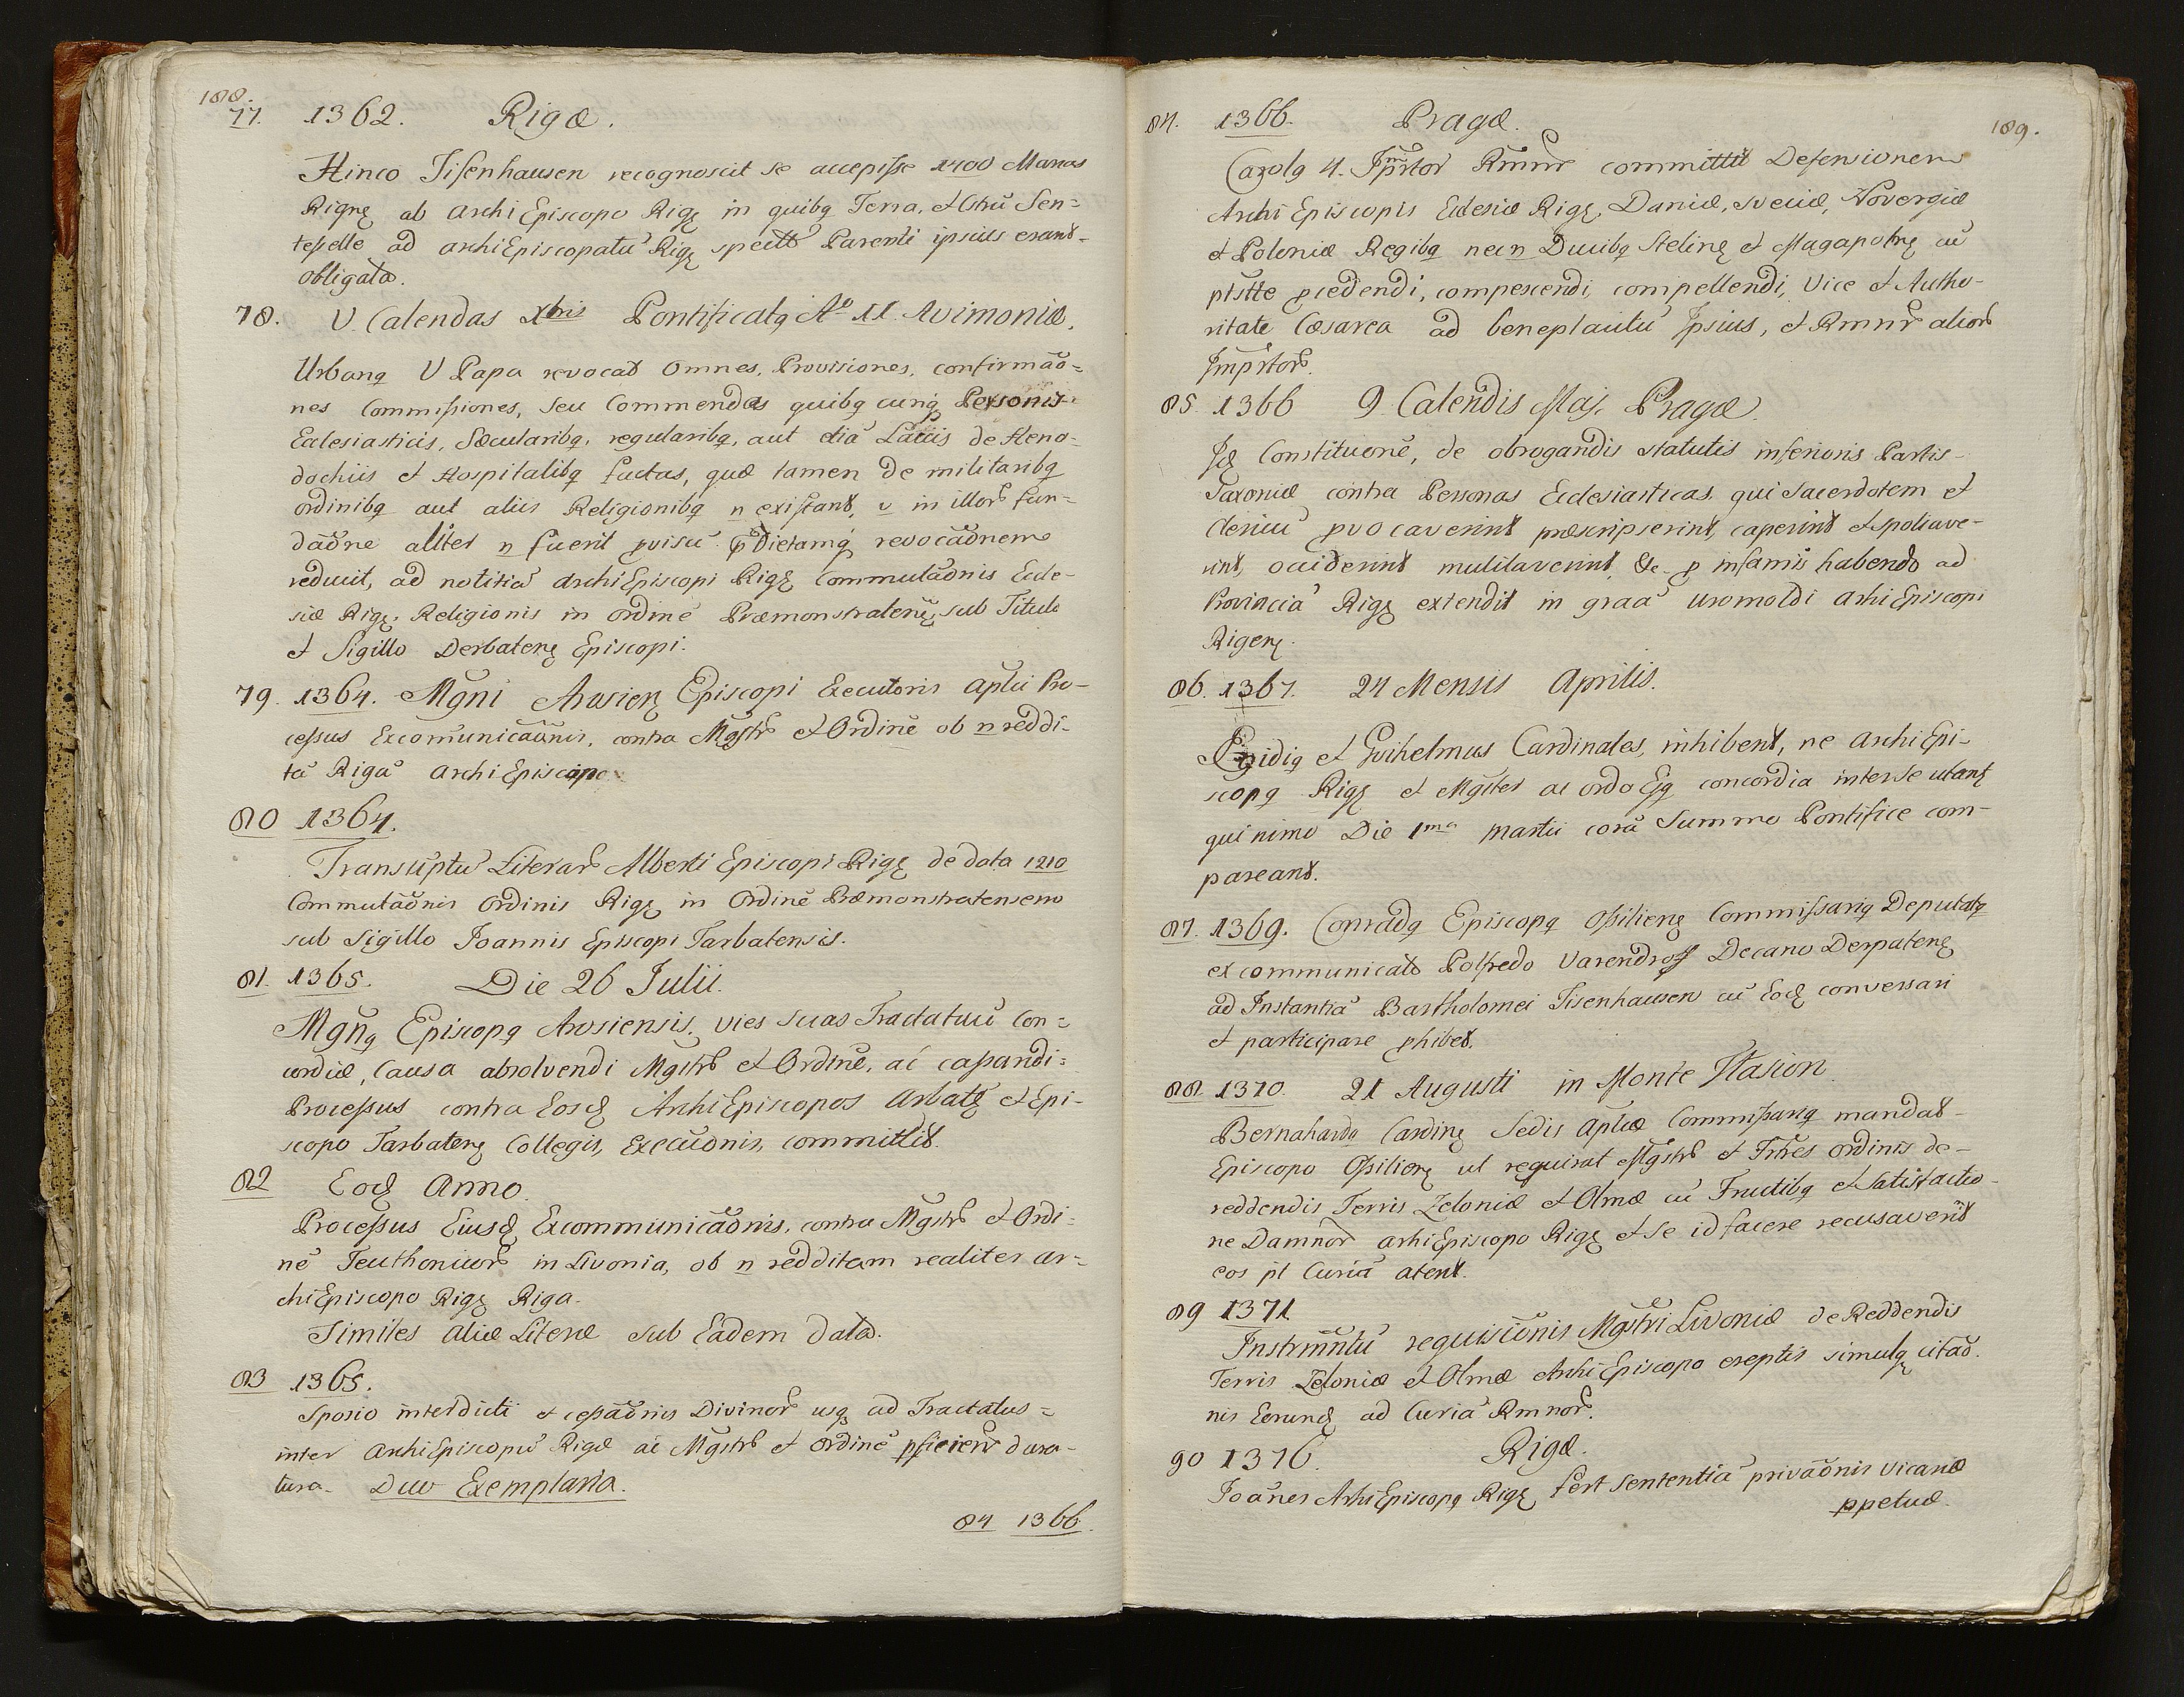 188.
77. 1362. Rigæ.
Hinco Tisenhausen recognoscit se accepisse 1400 Marcas
Rignȩ ab Archi Episcopo Rigȩ in quibq Terra, et Castrū Sen=
tepelle ad archiEpiscopatū Rigȩ Parenti ipsius erant
obligata.
78. V. Calendas Xbris Pontificatq Aº II. Avimoniæ.
Urbanq V Papa revocat Omnes, Provisiones, confirmāō=
nes Commissiones, seu Commendas quibq cunq Personis
Ecclesiasticis, Sæcularibq, regularibq, aut etiā Laicis de Heno-
dochiis et Hospitalibq factas, quæ tamen de militaribq
ordinibq aut aliis Religionibq n existant, v in illor fun=
dāōne aliter n fuerit pvisū. pdictamq revocāōnem
reducit, ad notitiā ArchiEpiscopi Rigȩ Commutāōnis Eccle-
siæ Rigȩ Religionis in Ordinē Præmonstratenȩ, sub Titulo
et Sigillo Derbatenȩ Episcopi.
79. 1364. Mgni Arosienȩ Episcopi Executoris Aplici Pro-
cessus Excomunicāōnis, contra Mgstr et Ordinē ob n reddi-
tā Rigā Archi Episcopo
80 1364.
Transūptū Literar Alberti Episcopi Rigȩ de data 1210
Commutāōnis Ordinis Rigȩ in Ordinē Præmonstratensem
sub Sigillo Joannis Episcopi Tarbatensis.
81. 1365. Die 26 Julii.
Mgnq Episcopq Arosiensis, vices suas Tractatuū Con=
cordiæ, Causa absolvendi Mgstr et Ordinē, ac cassandi=
Processus contra Eosd ArchiEpiscopos Arbatȩ et Epi-
scopo Tarbatenȩ Collegis, Execuōnis, committit.
82 Eod Anno.
Processus Eiusd Excommunicāōnis, contra Mgstr et Ordi=
nē Teuthonicor in Livonia, ob n redditam realiter Ar=
chiEpiscopo Rigȩ Riga.
Similes aliæ Literæ sub Eadem data.
83 1365.
Sposio interdicti et cessāōnis Divinor usq ad Tractatus=
inter ArchiEpiscopū Rigæ ac Mgstr et Ordinē dura-
tura. Duo Exemplaria.
84 1366.
189.
84. 1366. Pragæ.
Carolq 4. Imprtor Rmnr committit Defensionem
Archi Episcopis Ecclesiæ Rigȩ, Daniæ, Sveciæ, Norvergiæ
et Poloniæ Regibq nec n Ducibq Stetinȩ et Magapolnȩ cū
ptstte pcedendi, compescendi, compellendi, Vice et Autho-
ritate Cæsarea ad beneplacitū Ipsius, et Rmnr alior
Imprtor.
85. 1366 9 Calendis Maj. Pragæ.
Id Constitucnē, de obrogandis statutis inferioris Partis-
Saxoniæ contra Personas Ecclesiasticas, qui Sacerdotem et
clericū pvocaverint præscripserint, caperint et spoliave-
rint, occiderint mutilaverint, &c. p infamis habendo ad
Provinciā Rigȩ extendit in graā Uromoldi ArhiEpiscopi
Rigenȩ.
86. 1367. 24 Mensis Aprilis.
Egidiq et Gvihelmus Cardinales, inhibent, ne ArchiEpi-
scopq Rigȩ et Mgster ac ordo Ejq concordia inter se utantȩ
quinimo Die 1ma Martii corā Summo Pontifice com-
pareant.
87. 1369. Conradq Episcopq Ossilienȩ Commissariq Deputatq
excommunicato Polfredo Varendroff Decano Derpatenȩ
ad Instantiā Bartholomei Tisenhausen cū Eod conversari
et participare phibet.
88 1370. 21 Augusti in Monte Flasion.
Bernahardq Cardinȩ Sedis Aplicæ Commissariq mandat-
Episcopo Ossilienȩ ut requirat Mgstr et Frtres ordinis de-
reddendis Terris Zeloniæ et Olmæ cū Fructibq et satisfactio-
ne Damnor arhiEpiscopo Rigȩ et se id facere recusaverīt
eos pt Curiā atent.
89 1371
Instrmntū requisiōnis Mgstri Livoniæ de Reddendis
Terris Zeloniæ et Olmæ ArhiEpiscopo ereptis simulq citāō.
nis Eorund ad Curiā Rmnor.
90 1376. Rigæ.
Joānes ArhiEpiscopq Rigȩ fert Sententiā privāōnis Vicariæ
ppetuæ.